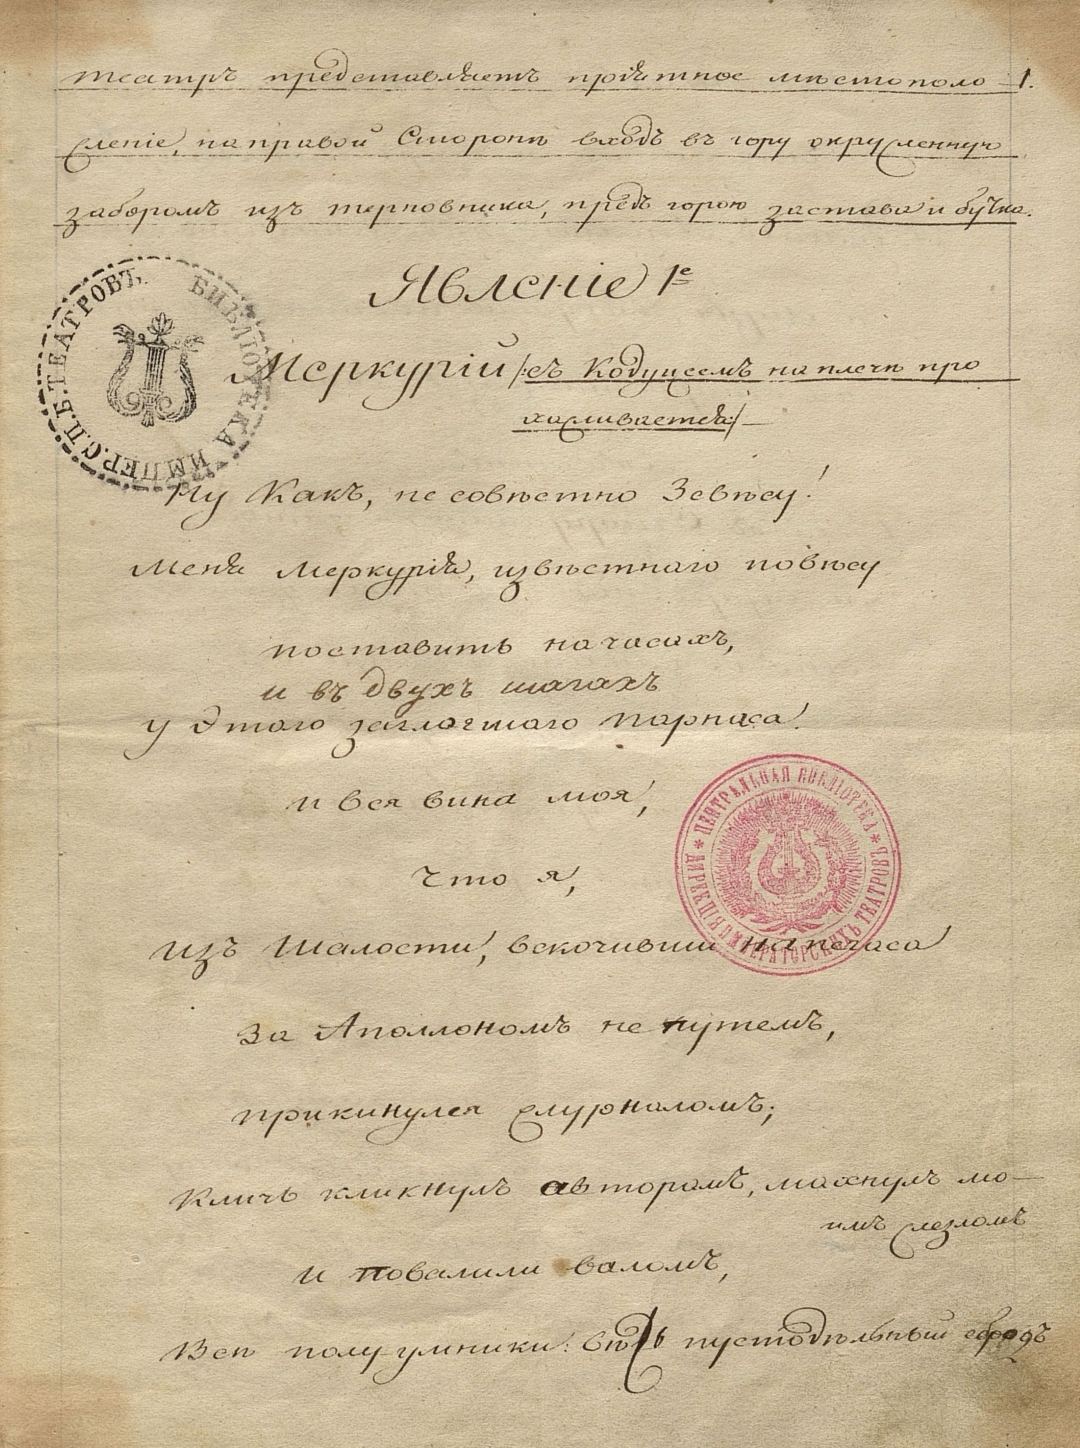 театръ представляетъ прїятное мѣстополо 1.
женїе, на правой Сторонѣ входъ въ гору окруженную
заборомъ изъ терновника, предъ горою застава и будка.
Явленїе 1е
Меркурїй /:съ Кодуцеемъ на плечѣ про
хаживается:/
Ну Какъ, не совѣстно Зевѣсу!
Меня Меркурїя, извѣстнаго повѣсу
поставить на часахъ,
и въ двухъ шагахъ
у Этого заглохшаго Парнаса!
и вся вина моя,
Что я,
изъ Шалости, вскочивши на пегаса
За Аполлономъ не путемъ,
прикинулся журналомъ;
Кличь кликнулъ авторамъ, махнулъ мо-
имъ жезломъ
и повалили валомъ,
Всѣ полуумники: весь пустодѣльный сбродъ
БИБЛІОТЕКА ИМПЕР. С.П.Б. ТЕАТРОВЪ.
ЦЕНТРАЛЬНАЯ БИБЛІОТЕКА * ДИРЕКЦІЯ ИМПЕРАТОРСКИХЪ ТЕАТРОВЪ *